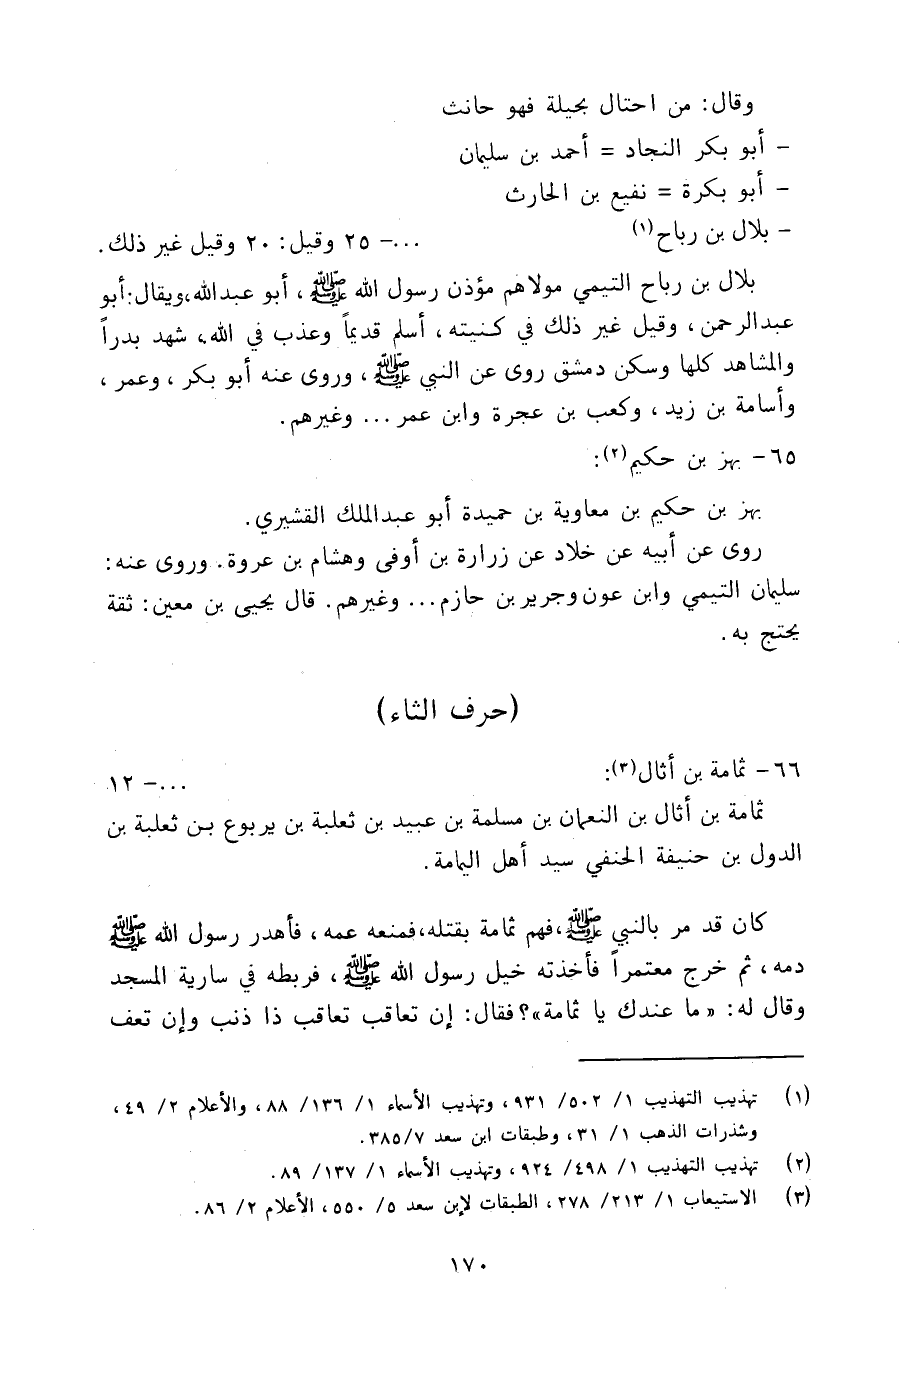 وقال: من احتال بحيلة فهو حانث
- أبو بكر النجاد = أحمد بن سليمان
- أبو بكرة = نفيع بن الحارث
- بلال بن رباح(١) ...- ٢٥ وقيل: ٢٠ وقيل غير ذلك.
بلال بن رباح التيمي مولاهم مؤذن رسول الله ﷺ، أبو عبدالله،ويقال:أبو
عبدالرحمن، وقيل غير ذلك في كنيته، أسلم قديماً وعذب في الله، شهد بدراً
والمشاهد كلها وسكن دمشق روى عن النبي ﷺ، وروى عنه أبو بكر، وعمر،
وأسامة بن زيد، وكعب بن عجرة وابن عمر... وغيرهم.
٦٥- بهز بن حكيم(٢):
بهز بن حكيم بن معاوية بن حميدة أبو عبدالملك القشيري.
روى عن أبيه عن خلاد عن زرارة بن أوفى وهشام بن عروة. وروى عنه:
سليمان التيمي وابن عون وجرير بن حازم... وغيرهم. قال يحيى بن معين: ثقة
يحتج به.
(حرف الثاء)
٦٦- ثمامة بن أثال(٣): ...- ١٢
ثمامة بن أثال بن النعمان بن مسلمة بن عبيد بن ثعلبة بن يربوع بن ثعلبة بن
الدول بن حنيفة الحنفي سيد أهل اليمامة.
كان قد مر بالنبي ﷺ،فهم ثمامة بقتله،فمنعه عمه، فأهدر رسول الله ﷺ
دمه، ثم خرج معتمراً فأخذته خيل رسول الله ﷺ، فربطه في سارية المسجد
وقال له: «ما عندك يا ثمامة»؟فقال: إن تعاقب تعاقب ذا ذنب وإن تعف
(١) تهذيب التهذيب ١/ ٥٠٢/ ٩٣١، وتهذيب الأسماء ١/ ١٣٦/ ٨٨، والأعلام ٢/ ٤٩،
وشذرات الذهب ١/ ٣١، وطبقات ابن سعد ٧/٣٨٥.
(٢) تهذيب التهذيب ١/ ٤٩٨/ ٩٢٤، وتهذيب الأسماء ١/ ١٣٧/ ٨٩.
(٣) الاستيعاب ١/ ٢١٣/ ٢٧٨، الطبقات لإبن سعد ٥/ ٥٥٠، الأعلام ٢/ ٨٦.
١٧٠